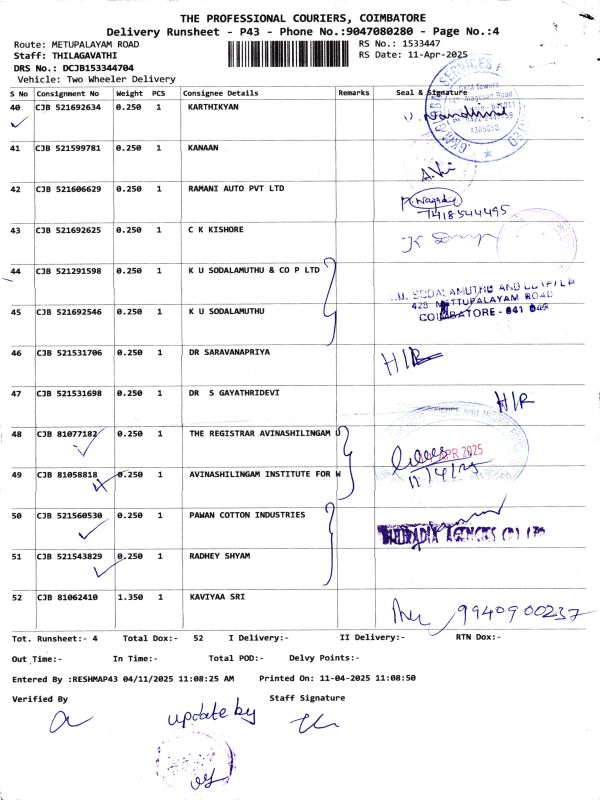 THE PROFESSIONAL COURIERS, COIMBATORE
Delivery Runsheet - P43 - Phone No.:9047080280 - Page No.:4
Route: METUPALAYAM ROAD
Staff: THILAGAVATHI
DRS No.: DCJB153344704
Vehicle: Two Wheeler Delivery
RS No.: 1533447
RS Date: 11-Apr-2025
S No Consignment No Weight PCS Consignee Details Remarks Seal & Signature
40 CJB 521692634 0.250 1 KARTHIKYAN
41 CJB 521599781 0.250 1 KANAAN
42 CJB 521606629 0.250 1 RAMANI AUTO PVT LTD
7418544495
43 CJB 521692625 0.250 1 C K KISHORE
44 CJB 521291598 0.250 1 K U SODALAMUTHU & CO P LTD
SODALAMUTHU AND
428 METTUPALAYAM ROAD
COIMBATORE - 641
45 CJB 521692546 0.250 1 K U SODALAMUTHU
46 CJB 521531706 0.250 1 DR SARAVANAPRIYA H/R
47 CJB 521531698 0.250 1 DR S GAYATHRIDEVI H/R
48 CJB 81077182 0.250 1 THE REGISTRAR AVINASHILINGAM U
APR 2025
11/4/25
49 CJB 81058818 0.250 1 AVINASHILINGAM INSTITUTE FOR W
50 CJB 521560530 0.250 1 PAWAN COTTON INDUSTRIES
AGENCIES (P) LTD
51 CJB 521543829 0.250 1 RADHEY SHYAM
52 CJB 81062410 1.350 1 KAVIYAA SRI 9940900237
Tot. Runsheet:- 4 Total Dox:- 52 I Delivery:- II Delivery:- RTN Dox:-
Out Time:- In Time:- Total POD:- Delvy Points:-
Entered By :RESHMAP43 04/11/2025 11:08:25 AM Printed On: 11-04-2025 11:08:50
Verified By Staff Signature
update by